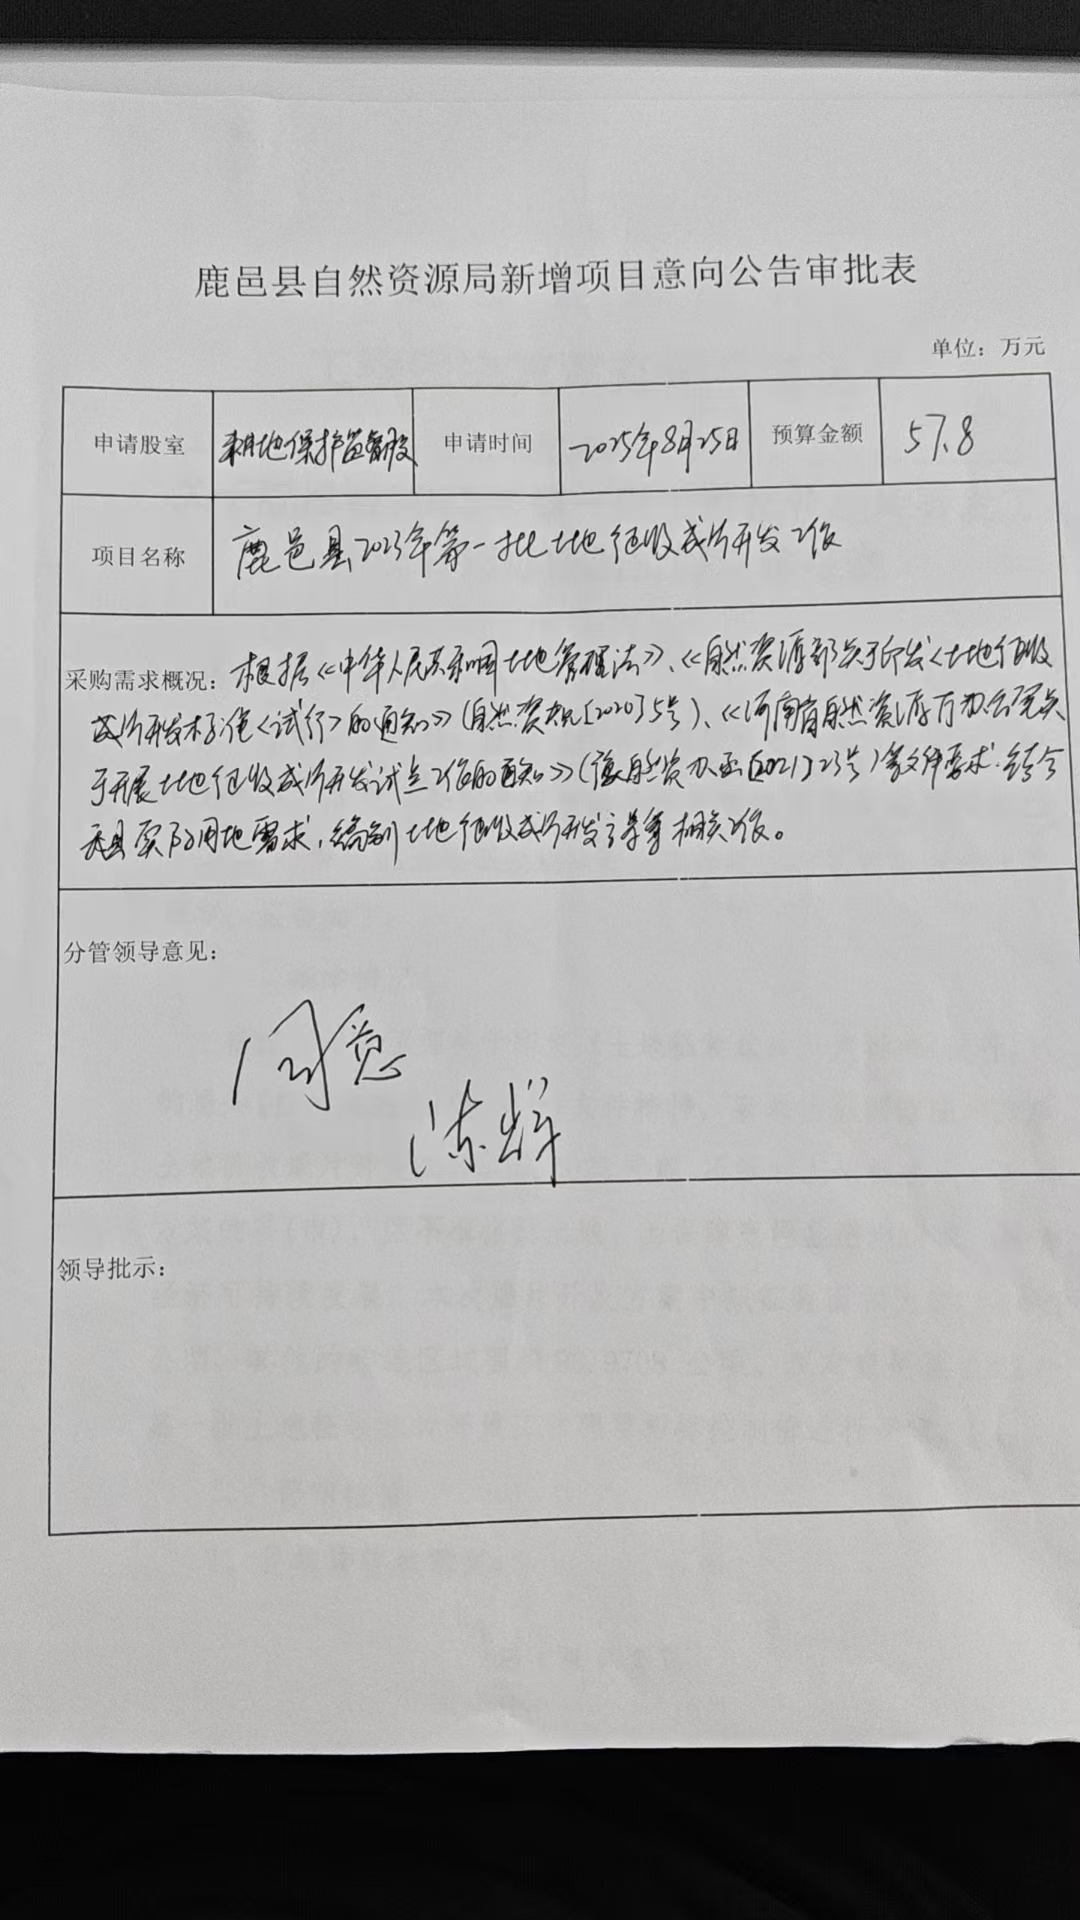 鹿邑县自然资源局新增项目意向公告审批表
单位：万元
申请股室 耕地保护监督股 申请时间 2025年8月25日 预算金额 57.8
项目名称 鹿邑县2023年第一批土地征收成片开发工作
采购需求概况：根据《中华人民共和国土地管理法》、《自然资源部关于印发<土地征收
成片开发标准<试行>的通知》(自然资规[2020]5号)、《河南省自然资源厅办公室关
于开展土地征收成片开发试点工作的通知》(豫自然资办函[2021]23号)等文件要求,结合
我县实际用地需求,编制土地征收成片开发方案等相关工作。
分管领导意见：
同意
陈辉
领导批示：